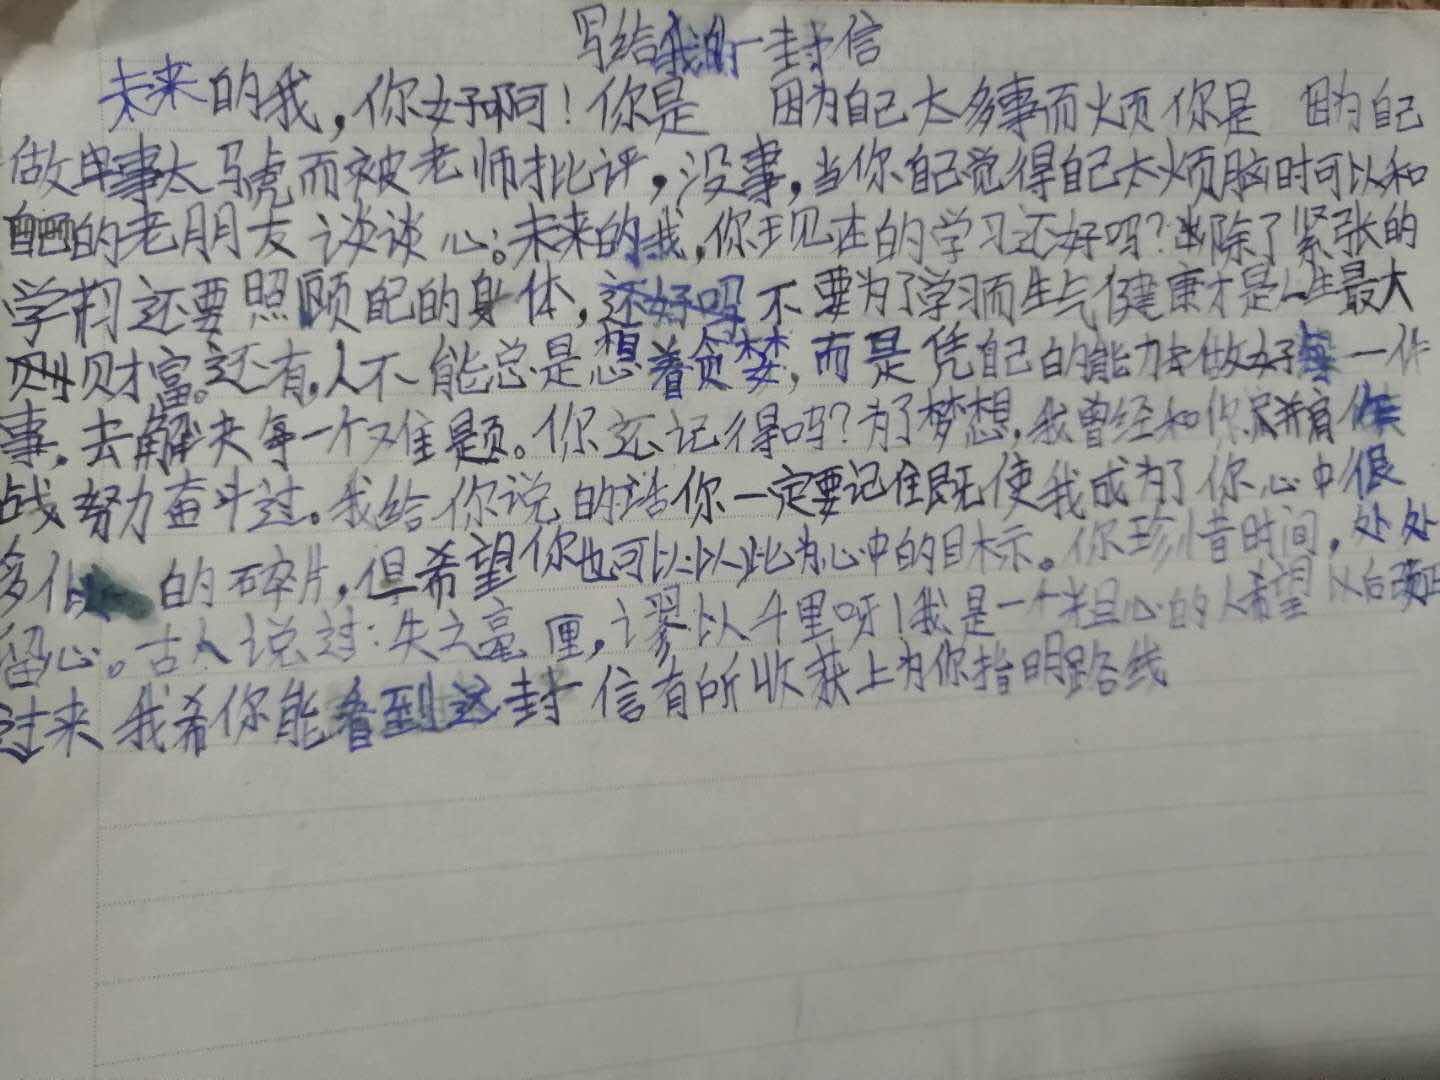 写给我的一封信
未来的我，你好啊！你是 因为自己太多事而烦你是 因为自己
做事太马虎而被老师批评，没事，当你自己觉得自己太烦脑时可以和
自己的老朋友谈谈心。未来的我，你现在的学习还好吗？除了紧张的
学习还要照顾自己的身体，还好吗不要为了学习而生气健康才是人生最大
财富。还有，人不能总是想着贪婪，而是凭自己的能力去做好每一件
事，去解决每一个难题。你还记得吗？为了梦想，我曾经和你并肩作
战努力奋斗过。我给你说的话你一定要记住既使我成为了你心中很
多 的碎片，但希望你也可以以此为心中的目标。你珍惜时间，处处
留心。古人说过：失之毫厘，谬以千里呀！我是一个粗心的人希望以后改正
过来我希你能看到这封信有所收获上为你指明路线